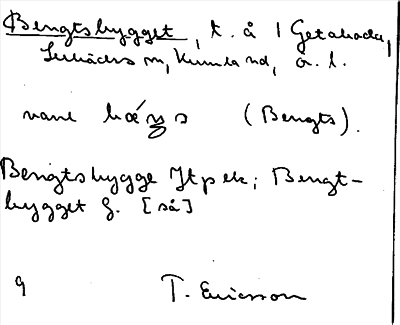 Bengtsbygget, t. å 1 Getaboda,
Lerbäcks sn, Kumla hd, Ö. l.
vanl bæŋs (Bengts).
Bengtsbygge Jtp ek; Bengt-
bygget G. [så]
9 T. Ericsson